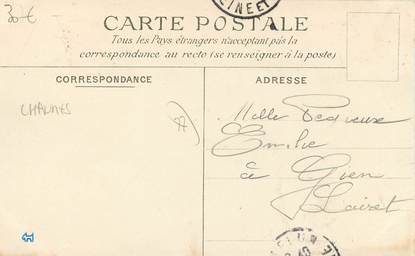 30€
CARTE POSTALE
Tous les Pays étrangers n'acceptent pas la
correspondance au recto (se renseigner à la poste)
CORRESPONDANCE
ADRESSE
CHAULNES
Melle
Emilie
à Gien
Loiret